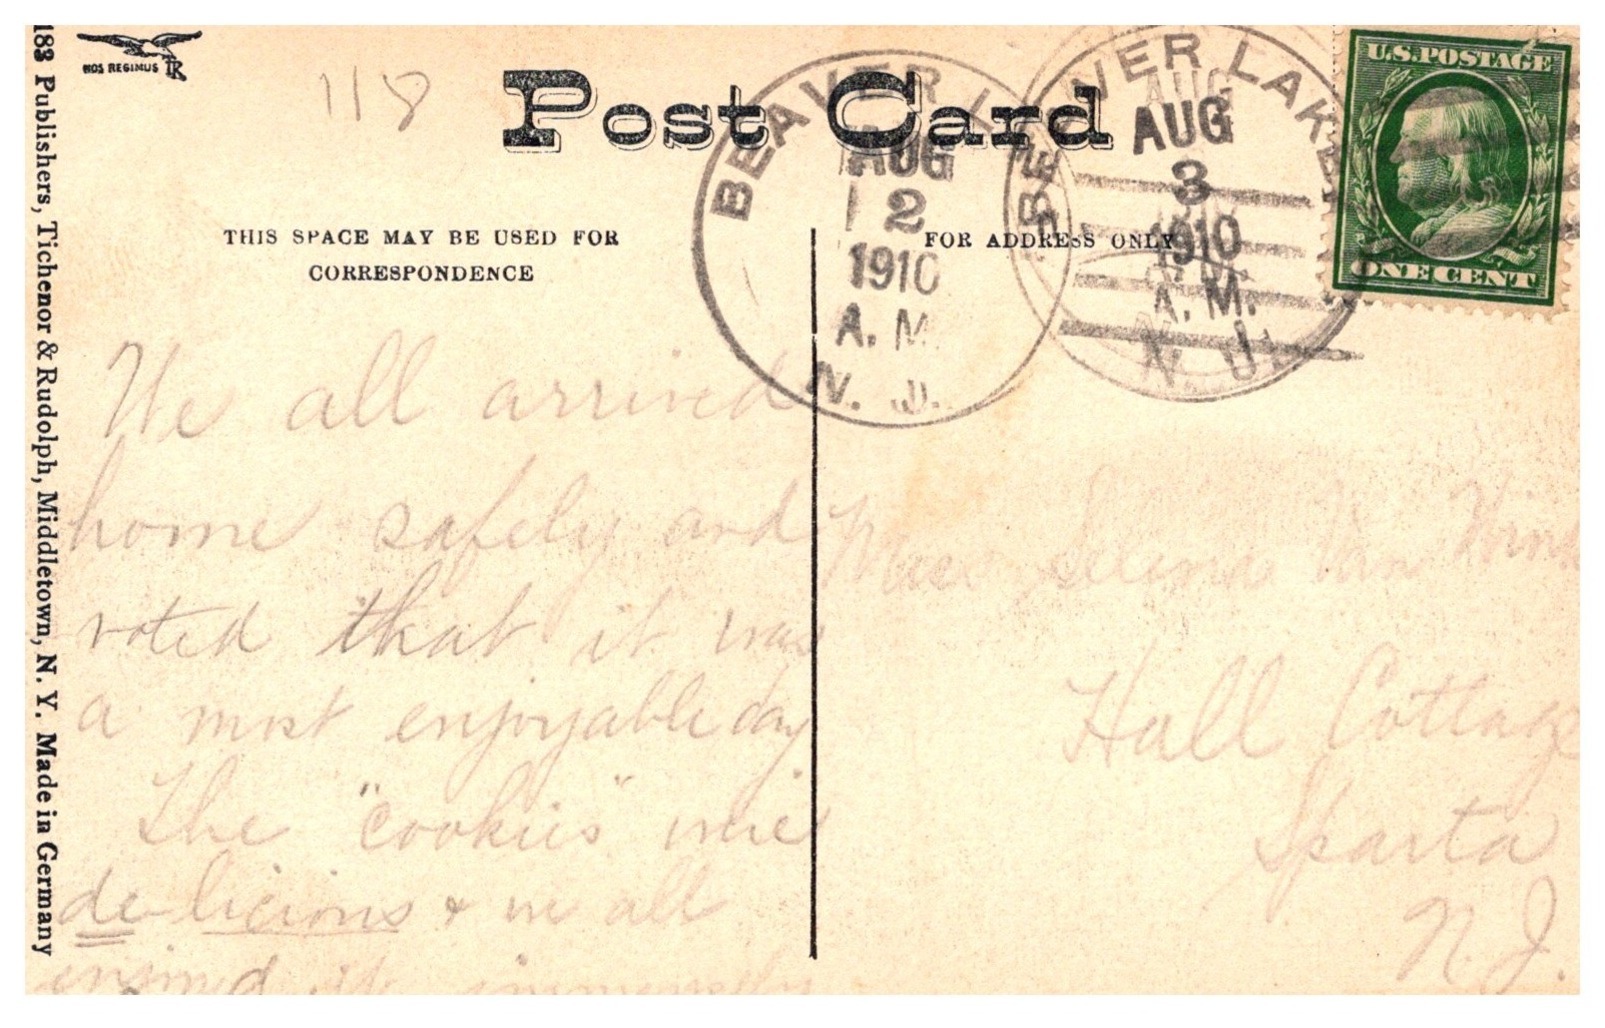 183 Publishers, Tichenor & Rudolph, Middletown, N. Y. Made in Germany
NOS REGIMUS TR
118
Post Card
THIS SPACE MAY BE USED FOR
CORRESPONDENCE
FOR ADDRESS ONLY
BEAVER L
AUG
2
1910
A. M.
N. J.
BEAVER LAKE
AUG
3
1910
A. M.
N. J.
U.S. POSTAGE
ONE CENT
We all arrived
home safely and
voted that it was
a most enjoyable day
The "cookies" were
de-licious & we all
enjoyed it immensely
Miss Selena Van
Hall Cottage
Sparta
N. J.